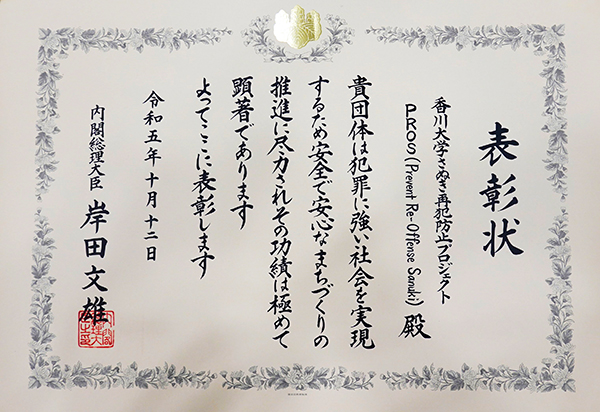 表彰状
香川大学さぬき再犯防止プロジェクト
PROS(Prevent Re-Offense Sanuki) 殿
貴団体は犯罪に強い社会を実現
するため安全で安心なまちづくりの
推進に尽力されその功績は極めて
顕著であります
よってここに表彰します
令和五年十月十二日
内閣総理大臣 岸田文雄